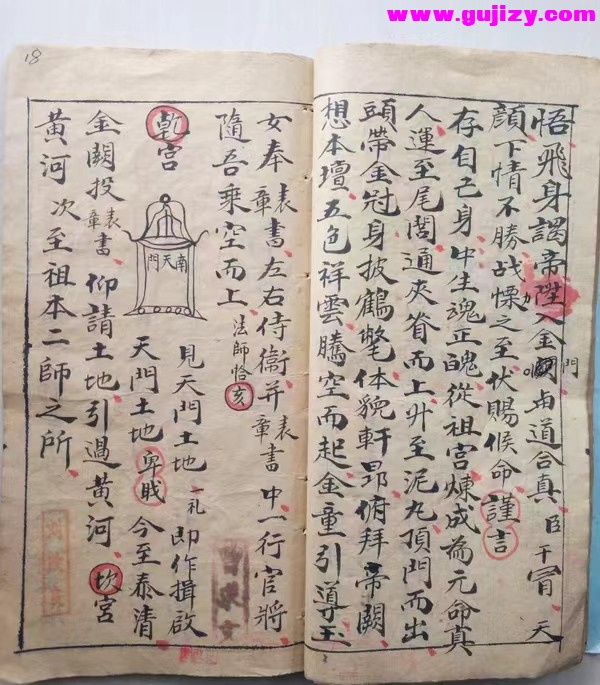 www.gujizy.com
18
悟飛身謁帝陛入金闕門与道合真臣干冐天
顔下情不勝战慄之至伏賜候命謹言
存自己身中生魂正魄從祖宫煉成為元命真
人運至尾閭通夾脊而上升至泥丸頂門而出
頭帶金冠身披鶴氅体貌軒昂俯拜帝闕
想本壇五色祥雲騰空而起金童引導玉
女奉表章書左右侍衛并表章書中一行官將
隨吾乘空而上法師恰亥
乾宫
南天門
見天門土地一礼即作揖啟
天門土地卑职今至泰清
金闕投表章書仰請土地引過黄河坎宫
黄河次至祖本二師之所